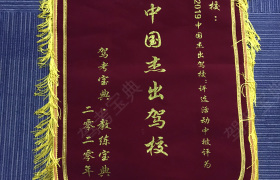 校：
2019中国杰出驾校：评选活动中被评为
中国杰出驾校
驾考宝典、教练宝典
二零二零年